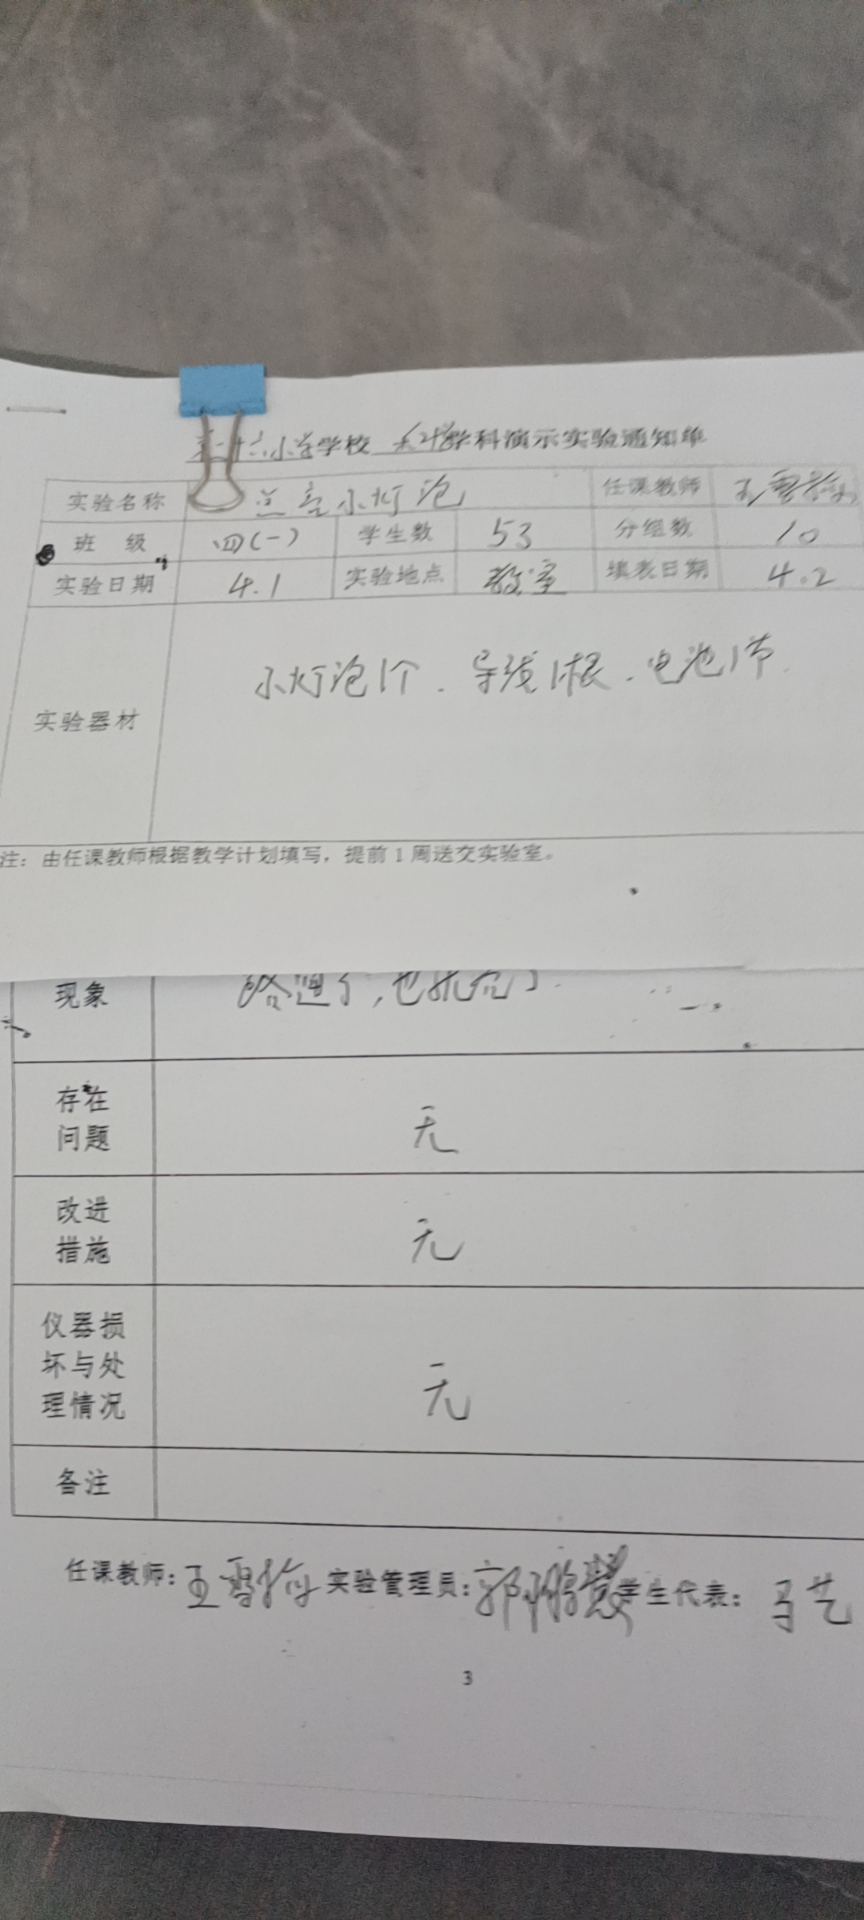 第十六小学学校 科学学科演示实验通知单
实验名称 点亮小灯泡 任课教师 王雪梅
班 级 四(一) 学生数 53 分组数 10
实验日期 4.1 实验地点 教室 填表日期 4.2
实验器材 小灯泡1个、导线1根、电池1节
注：由任课教师根据教学计划填写，提前1周送交实验室。
现象 路通了，也就亮了.
存在
问题 无
改进
措施 无
仪器损
坏与处
理情况 无
备注
任课教师：王雪梅 实验管理员：郭 学生代表：马艺
3